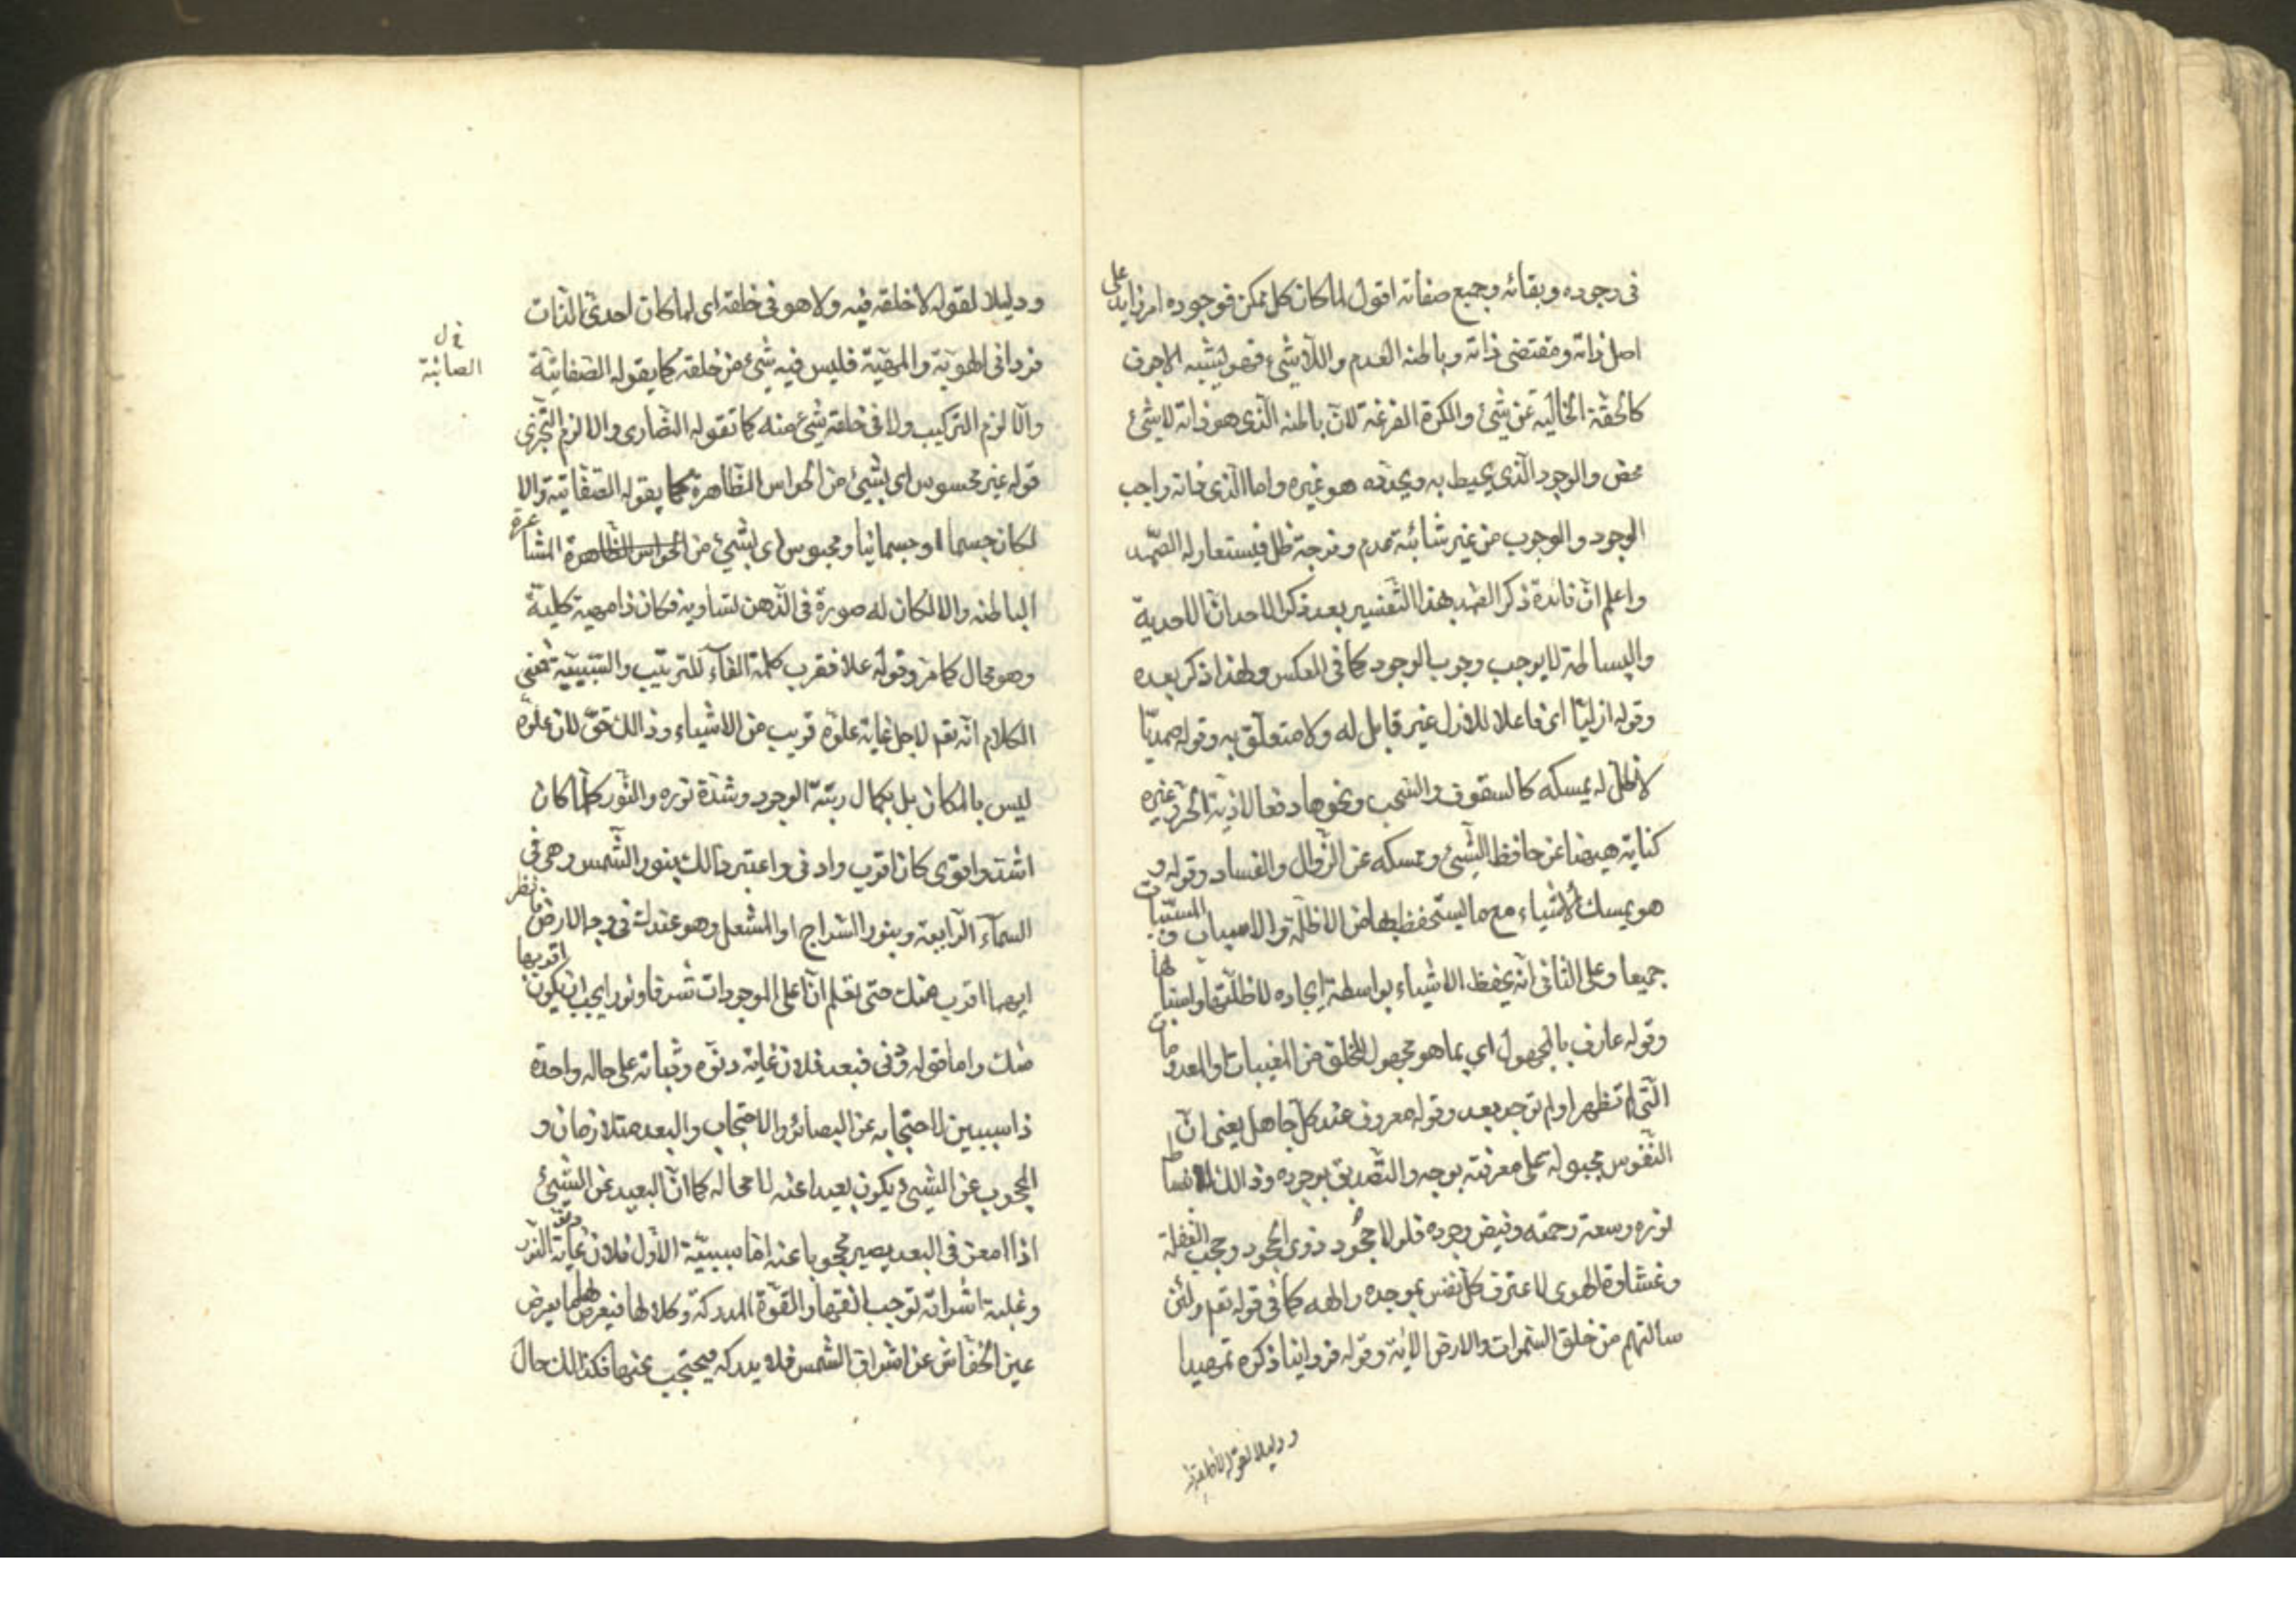 فى وجوده وبقائه وجميع صفاته اقول لما كان كل ممكن فوجوده امر زايد على
اصل ذاته ومقتضى ذاته وباطنه العدم واللاشئ فهو يشبه الاجوف
كالحقة الخالية عن شئ والكرة المفرغة لان باطنه الذى هو ذاته لا شئ
محض والوجود الذى يحيط به ويحدده هو غيره واما الذى ذاته واجب
الوجود والوجوب من غير شائبة عدم وفرجة ظل فيستعار له الصمد
واعلم ان فائدة ذكر الصمد بهذا التفسير بعد ذكر الاحد ان الاحدية
والبساطة لا يوجب وجوب الوجود كما فى العكس ولهذا ذكر بعده
وقوله ازليا اى فاعلا للازل غير قابل له ولا متعلق به وقوله صمديا
لا ظل له يمسكه كالسقوف والسحب ونحوها دفعا لاذية الحر وغيره
كناية ههنا عن حافظ الشئ وممسكه عن الزوال والفساد وقوله و
هو يمسك الاشياء مع ما يستحفظ بها من الاظلة والاسباب والمسببات
جميعا وعلى الثانى انه يحفظ الاشياء بواسطة ايجاده لاظلتها واسبابها
وقوله عارف بالمجهول اى بما هو مجهول للخلق من المغيبات والمعدومات
التى لم تظهر او لم توجد بعد وقوله معروف عند كل جاهل يعنى ان
النفوس مجبولة على معرفته بوجه والتصديق بوجوده وذالك لانبساط
نوره وسعة رحمته وفيض وجوده فلولا جحود ذوى الجحود وحجب الغفلة
وغشاوة الهوى لاعترف كل نفس بوجوده والهه كما فى قوله تعم ولئن
سالتهم من خلق السموات والارض الاية وقوله فردانيا ذكره تمهيدا
ودليلا لقوله لا خلقه فيه
ودليلا لقوله لا خلقه فيه ولا هو فى خلقه اى لما كان احدى الذات
فردانى الهوية والمهية فليس فيه شئ من خلقه كما يقوله الصفاتية
والا لزم التركيب ولا فى خلقه شئ منه كما تقوله النصارى والا لزم التجزى
قوله غير محسوس اى بشئ من الحواس الظاهرة كما يقوله الصفاتية والا
لكان جسما او جسمانيا ومجسوس اى بشئ من الحواس الظاهرة المشاعرة
الباطنة والا لكان له صورة فى الذهن تساويه فكان ذا مهية كلية
وهو محال كما مر وقوله علا فقرب كلمة الفاء للترتيب والتسبيبية فمعنى
الكلام انه تعم لاجل غاية علوه قريب من الاشياء وذالك حق لان علوه
ليس بالمكان بل بكمال رتبة الوجود وشدة نوره والنور كلما كان
اشد واقوى كان اقرب وادنى واعتبر ذالك بنور الشمس وهى فى
السماء الرابعة وبنور السراج او المشعل وهو عندك فى وجه الارض فانظر
ايهما اقرب منك حتى تعلم ان اعلى الموجودات شرفا ونورا يجب ان يكون اقربها
منك واما قوله ودنى فبعد فلان غاية دنوه وثباته على حاله واحدة
ذا سببين لاحتجابه عن البصائر والاحتجاب والبعد متلازمان و
المحجوب عن الشئ يكون بعيدا عنه لا محالة كما ان البعيد عن الشئ
اذا امعن فى البعد يصير محجوبا عنه اما سببية الاول فلان غاية النور
وغلبة اشراقه توجب القهر للقوة المدركة وكلالها فيعرض لها ما يعرض
عين الخفاش عن اشراق الشمس فلا يدركه فيحتجب عنها فكذالك حال
الصائبة